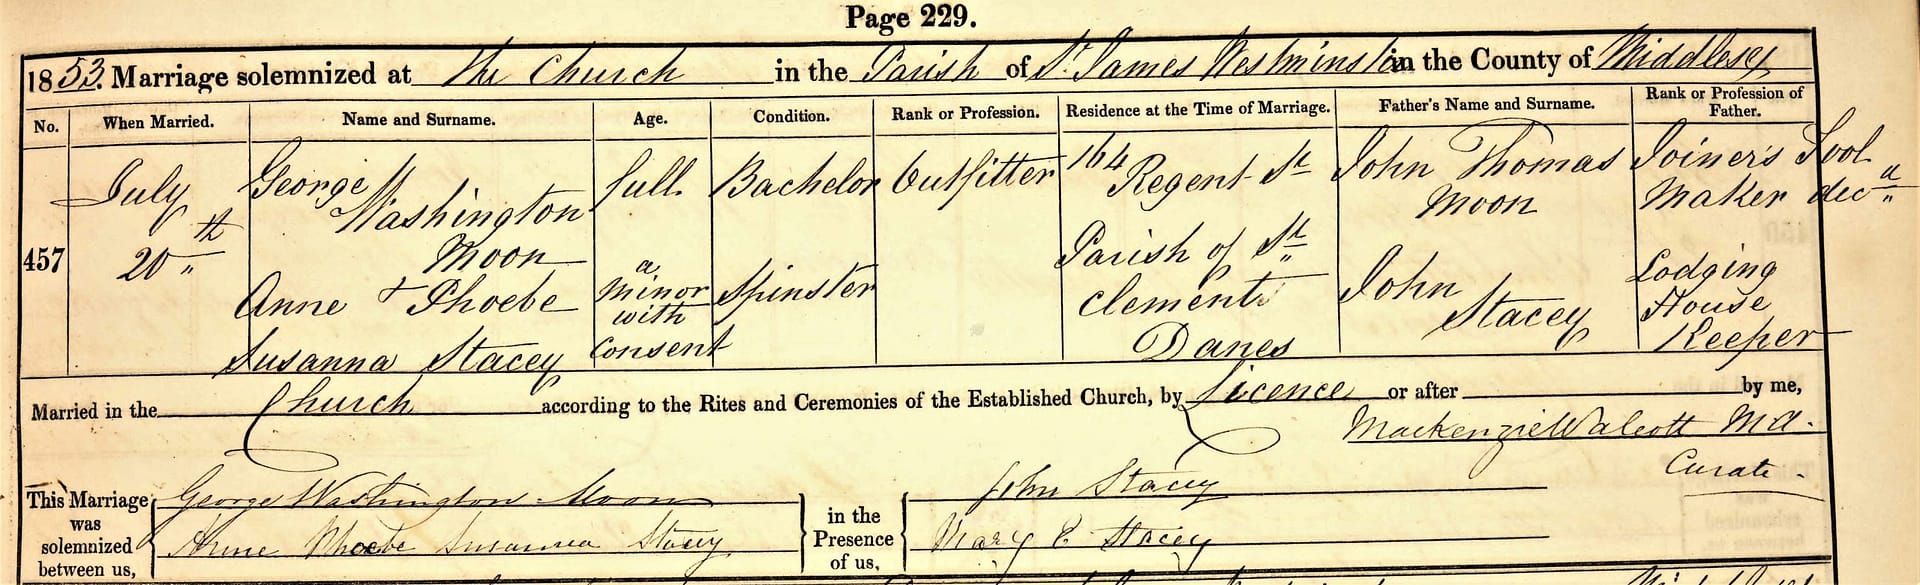 Page 229.
1853. Marriage solemnized at the Church in the Parish of St. James Westminster in the County of Middlesex
No. When Married. Name and Surname. Age. Condition. Rank or Profession. Residence at the Time of Marriage. Father's Name and Surname. Rank or Profession of Father.
457
July
20th
George
Washington
Moon
full
Bachelor
Outfitter
164
Regent St
John Thomas
Moon
Joiner's Tool
Maker decd
Anne Phoebe
Susanna Stacey
a
minor
with
consent
Spinster
Parish of St
Clement
Danes
John
Stacey
Lodging
House
Keeper
Married in the Church according to the Rites and Ceremonies of the Established Church, by Licence or after by me,
Mackenzie Walcott M.A.
Curate.
This Marriage was solemnized between us,
George Washington Moon
Anne Phoebe Susanna Stacey
in the Presence of us,
John Stacey
Mary E Stacey